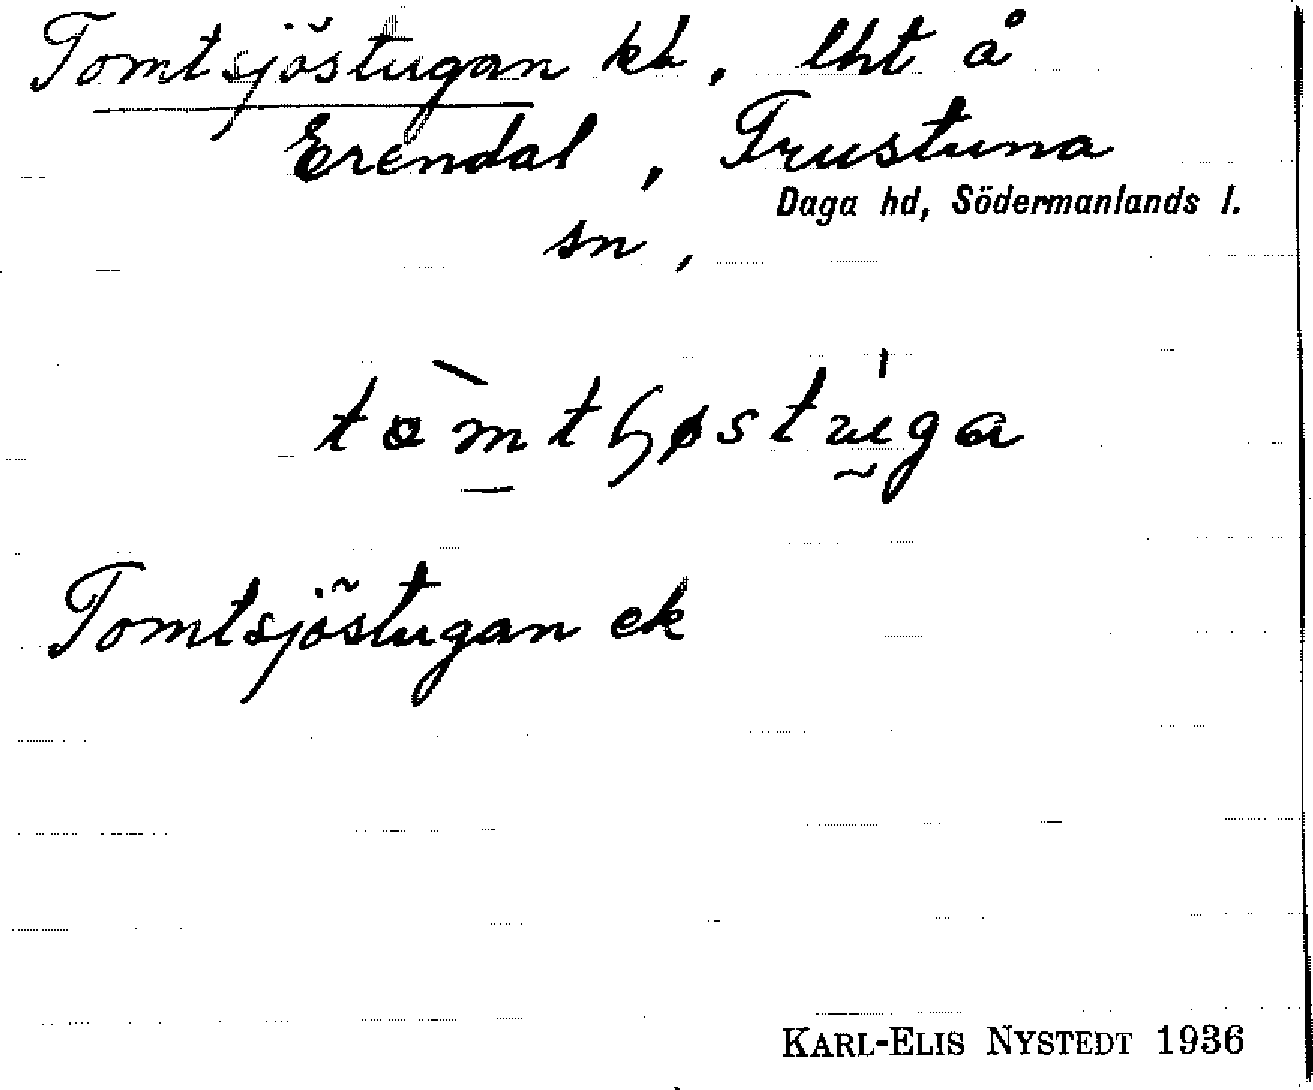 Tomtsjöstugan kt, lht å
Erendal, Frustuna
Daga hd, Södermanlands l.
sn,
Tomtsjöstugan ek
KARL-ELIS NYSTEDT 1936